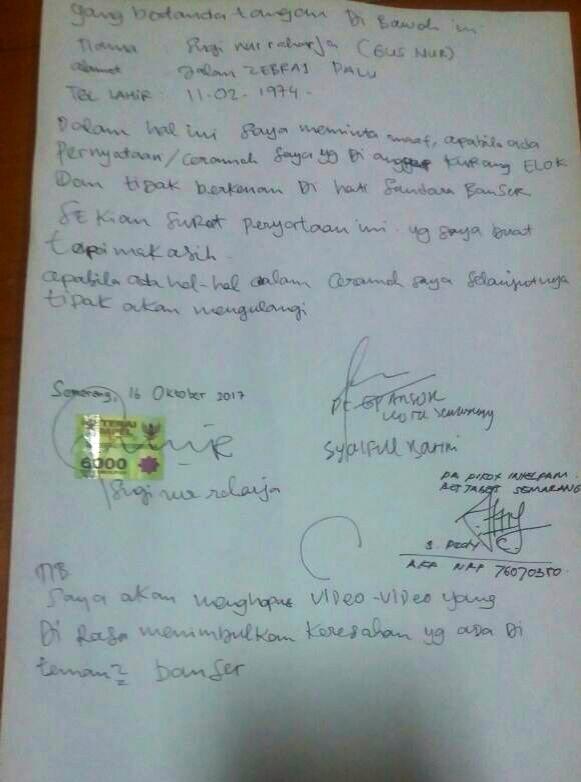 yang bertanda tangan Di Bawah ini
Nama Sugi nur raharja (GUS NUR)
alamat Jalan ZEBRA 1 PALU
TGL LAHIR : 11-02-1974-
Dalam hal ini saya meminta maaf, apabila ada
Pernyataan/ceramah saya yg Di anggap kurang ELOK
Dan tidak berkenan Di hati Saudara BANSER
SEKian Surat pernyataan ini yg saya buat
terima kasih.
apabila ada hal-hal dalam ceramah saya selanjutnya
tidak akan mengulangi
Semarang, 16 Oktober 2017
METERAI
TEMPEL
6000
Sugi nur raharja
PC GP ANSOR
Kota Semarang
Syaiful Bahri
POLRESTABES SEMARANG
AKP NRP 76070350
NB
Saya akan menghapus VIDEO-VIDEO yang
Di Rasa menimbulkan keresahan yg ada Di
teman2 banser